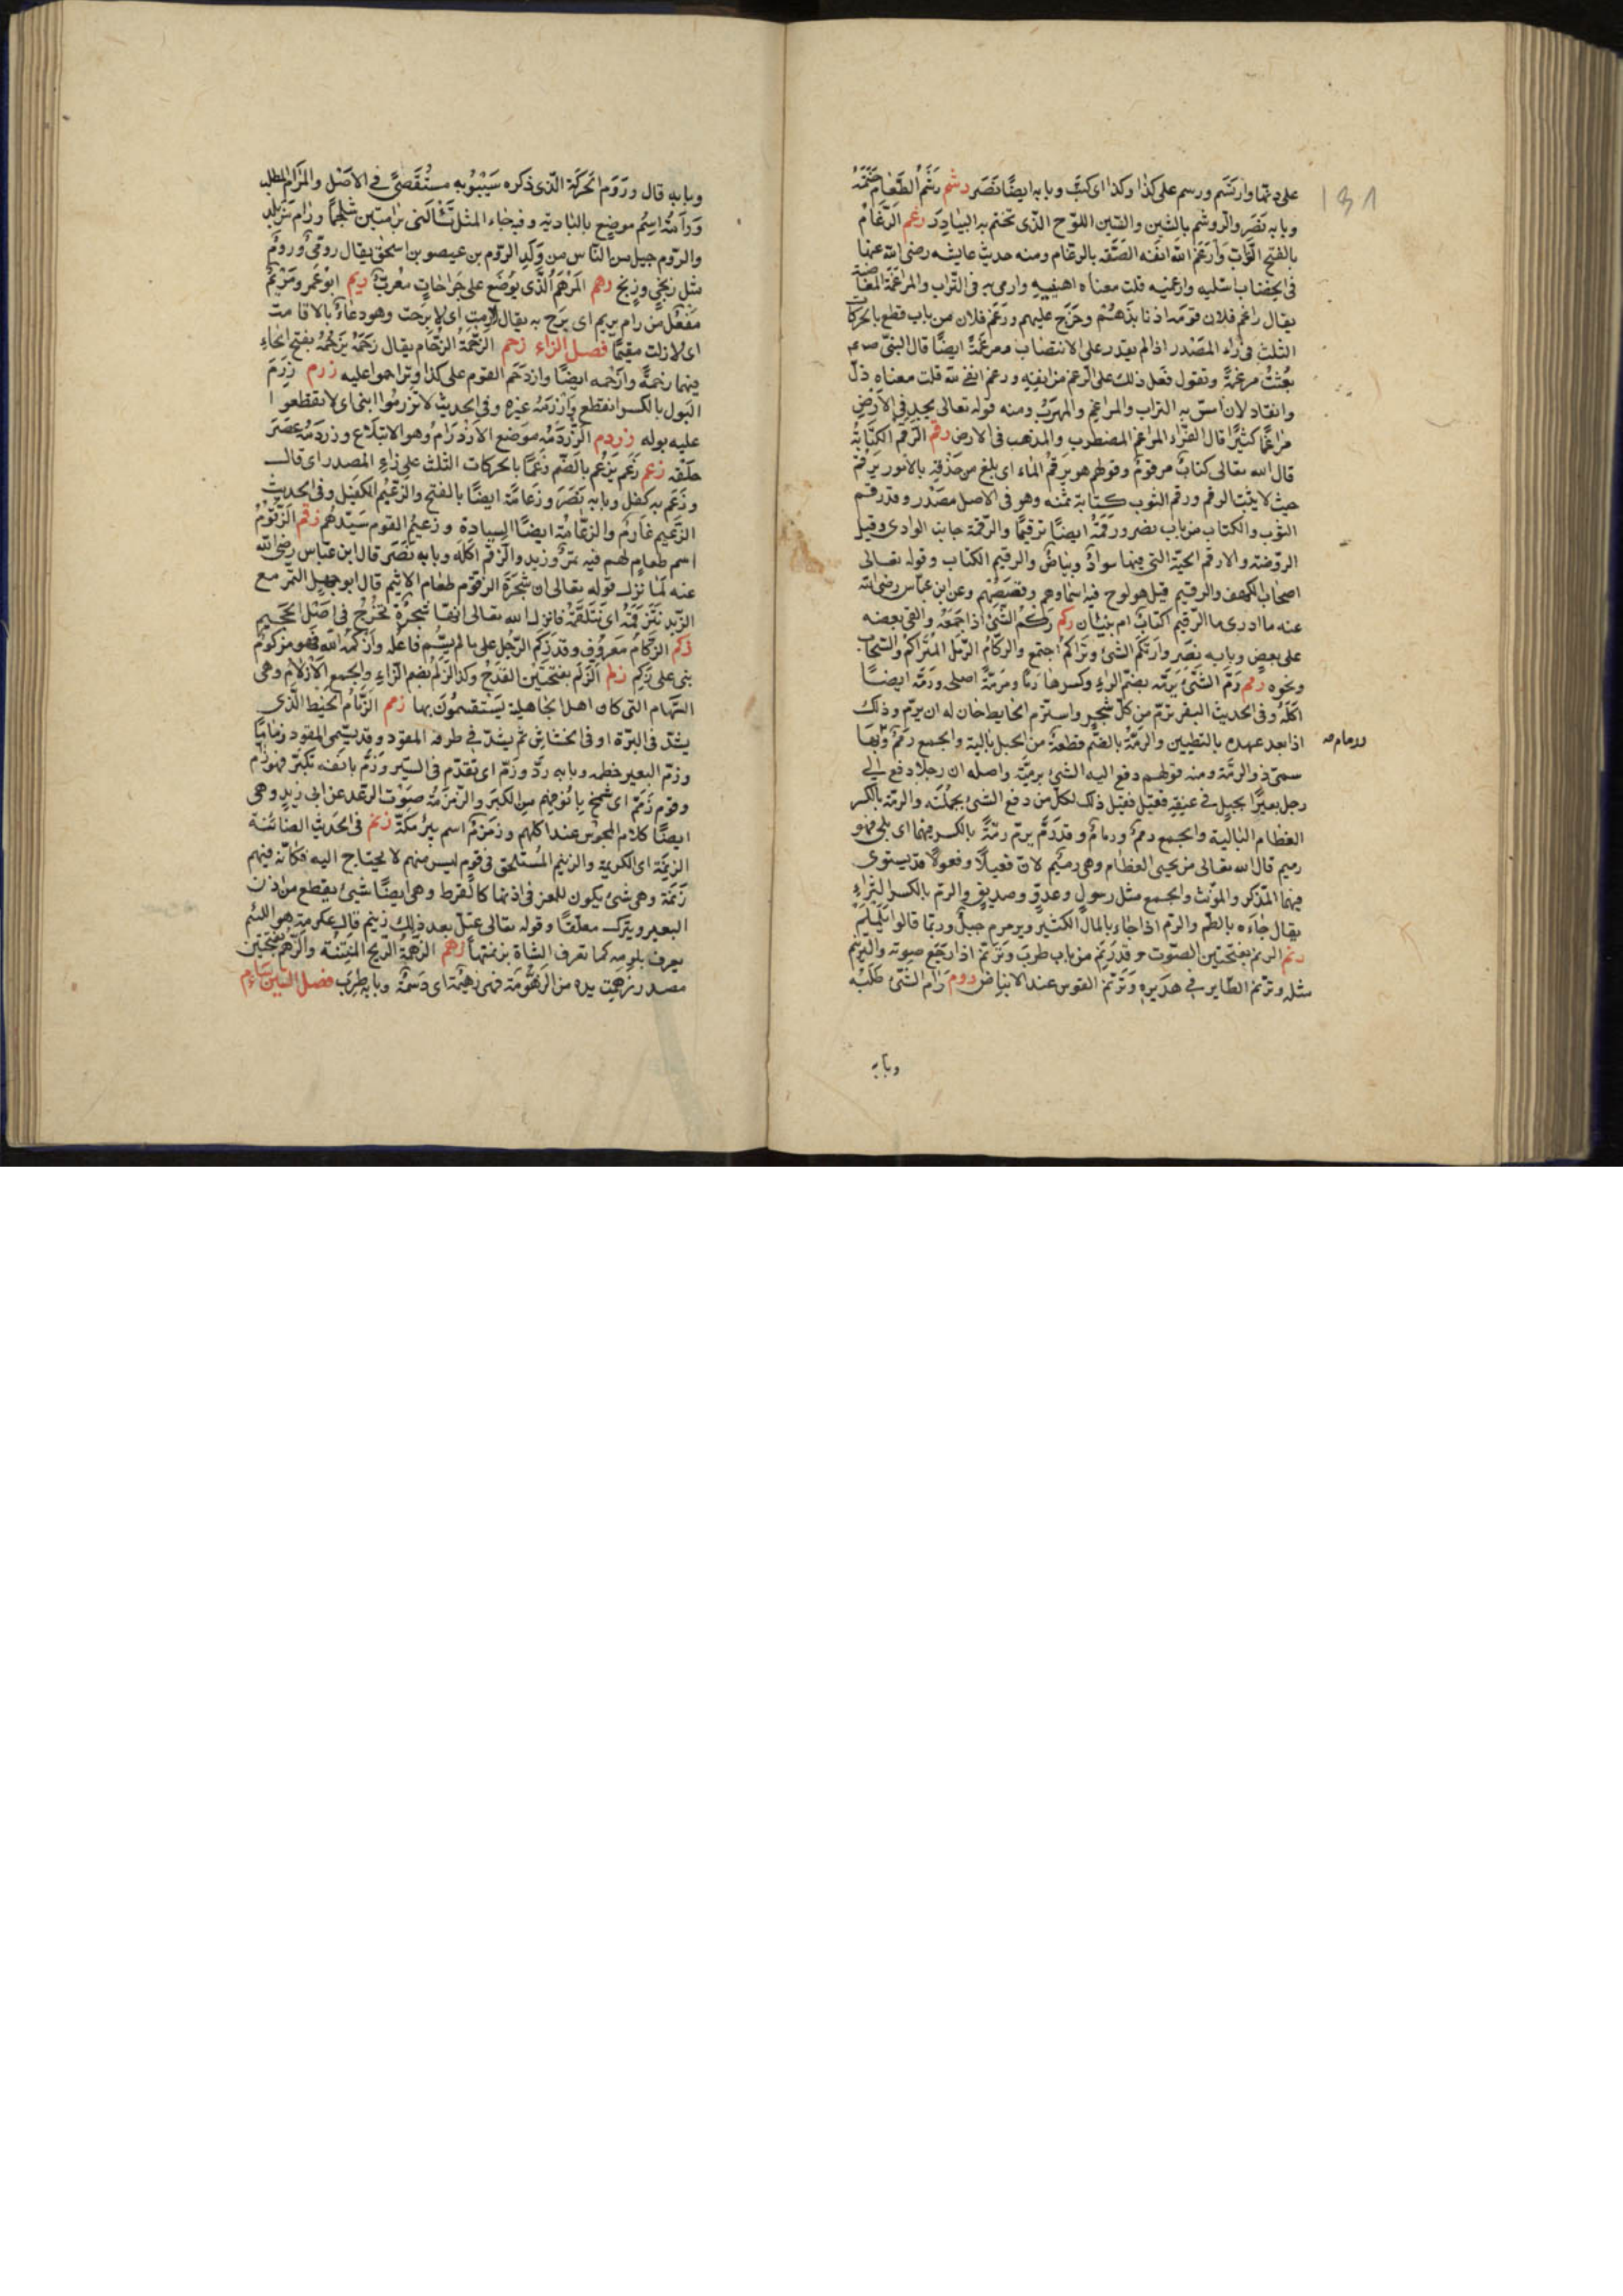 ١٣١
على دنها وارتسم ورسم على كذا وكذا اى كتب وبابه ايضا نصر رشم رشم الطعام ختمه
وبابه نصر والروشم بالشين والسين اللوح الذى تختم به البيادر رغم الرغام
بالفتح التراب وارغم الله انفه الصقه بالرغام ومنه حديث عايشه رضى الله عنها
فى الخضاب اسلتيه وارغميه قلت معناه اهينيه وارمى به فى التراب والمراغمة المغاضبة
يقال راغم فلان قومه اذا نابذهم وخرج عليهم ورغم فلان من باب قطع بالحركات
الثلث فى راء المصدر اذا لم يقدر على الانتصاب ومرغمة ايضا قال النبى صعم
بعثت مرغمة وتقول فعل ذلك على الرغم من انفه ورغم انفى لله قلت معناه ذل
وانقاد لان اسق به التراب والمراغم والمهرب ومنه قوله تعالى يجد فى الارض
مراغما كثيرا قال الفراء المراغم المضطرب والمذهب فى الارض رقم الرقم الكتابة
قال الله تعالى كتاب مرقوم وقولهم هو يرقم الماء اى بلغ من حذقه بالامور يرقم
حيث لا يثبت الرقم ورقم الثوب كتابة ثمنه وهو فى الاصل مصدر وقد رقم
الثوب والكتاب من باب نصر ورقمه ايضا ترقيما والرقمة جانب الوادى وقيل
الروضة والارقم الحية التى فيها سواد وبياض والرقيم الكتاب وقوله تعالى
اصحاب الكهف والرقيم قيل هو لوح فيه اسماوهم وقصصهم وعن ابن عباس رضى الله
عنه ما ادرى ما الرقيم اكتاب ام بنيان ركم ركم الشئ اذا جمعه والقى بعضه
على بعض وبابه نصر وارتكم الشئ وتراكم اجتمع والركام الرمل المتراكم والسحاب
ونحوه رمم رم الشئ يرمه بضم الراء وكسرها رما ومرمة اصلحه ورمه ايضا
اكله وفى الحديث البقر ترم من كل شجر واسترم الحايط حان له ان يرم وذلك
اذا بعد عهده بالتطيين والرمة بالضم قطعة من الحبل بالية والجمع رمم وبها
ورمام صه
سمى ذو الرمة ومنه قولهم دفع اليه الشئ برمته واصله ان رجلا دفع الى
رجل بعيرا بحبل فى عنقه فقيل ذلك لكل من دفع الشئ بجملته والرمة بالكسر
العظام البالية والجمع رمم ورمام وقد رم يرم رمة بالكسر فيهما اى بلى فهو
رميم قال الله تعالى من يحيى العظام وهى رميم لان فعيلا وفعولا قد يستوى
فيهما المذكر والمونث والجمع مثل رسول وعدو وصديق والرم بالكسر الثراء
يقال جاءه بالطم والرم اذا جاء بالمال الكثير ويرمرم جبل وربما قالوا يلملم
رنم الرنم بفتحتين الصوت وقد رنم من باب طرب وترنم اذا رجع صوته والترنيم
مثله وترنم الطاير فى هديره وترنم القوس عند الانباض روم رام الشئ طلبه
وبابه
وبابه قال وروم الحركة الذى ذكره سيبويه مستقصى فى الاصل والمرام المطلب
ورامة اسم موضع بالبادية وفيه جاء المثل تسالنى برامتين شلجما ورام تزيلد
والروم جيل من الناس من ولد الروم بن عيصو بن اسحق يقال رومى وروم
مثل زنجى وزنج رهم المرهم الذى يوضع على جراحات معرب ريم ابو عمرو مريم
مفعل من رام يريم اى برح به يقال لا رمت اى لا برحت وهو دعاء بالاقامة
اى لا زلت مقيما فصل الزاء زحم الزحمة الزحام يقال زحمه يزحمه بفتح الحاء
فيهما زحمة وازحمه ايضا وازدحم القوم على كذا وتزاحموا عليه زرم زرم
البول بالكسر انقطع وازرمه غيره وفى الحديث لا تزرموا ابنى اى لا تقطعوا
عليه بوله زردم الزردمه موضع الازدرام وهو الابتلاع وزردمه عصر
حلقه زعم زعم يزعم بالضم زعما بالحركات الثلث على زاء المصدر اى قال
وزعم به كفل وبابه نصر وزعامة ايضا بالفتح والزعيم الكفيل وفى الحديث
الزعيم غارم والزعامة ايضا السيادة وزعيم القوم سيدهم زقم الزقوم
اسم طعام لهم فيه تمر وزبد والزقم اكله وبابه نصر قال ابن عباس رضى الله
عنه لما نزل قوله تعالى ان شجرة الزقوم طعام الاثيم قال ابو جهل التمر مع
الزبد نتزقمه اى نتلقمه فانزل الله تعالى انها شجرة تخرج فى اصل الجحيم
زكم الزكام معروف وقد زكم الرجل على ما لم يسم فاعله وازكمه الله فهو مزكوم
بنى على زكم زلم الزلم بفتحتين القدح وكذا الزلم بضم الزاء والجمع الازلام وهى
السهام التى كان اهل الجاهلية يستقسمون بها زمم الزمام الخيط الذى
يشد فى البرة او فى الخشاش ثم يشد فى طرفه المقود وقد يسمى المقود زماما
وزم البعير خطمه وبابه رد وزم اى تقدم فى السير وزم بانفه تكبر فهو زام
وقوم زمم اى شمخ بانوفهم من الكبر والزمزمة صوت الرعد عن ابى زيد وهى
ايضا كلام المجوس عند اكلهم وزمزم اسم بئر مكة زنم فى الحديث الضائنة
الزنمة اى الكريمة والزنيم المستلحق فى قوم ليس منهم لا يحتاج اليه فكانه فيهم
زنمة وهى شئ يكون للمعز فى اذنها كالقرط وهى ايضا شئ يقطع من اذن
البعير ويترك معلقا وقوله تعالى عتل بعد ذلك زنيم قال عكرمة هو اللئيم
يعرف بلومه كما تعرف الشاة بزنمتها زهم الزهمة الريح المنتنة والزهم بفتحتين
مصدر زهمت يده من الزهومة فهى زهمة اى دسمة وبابه طرب فصل السين سام